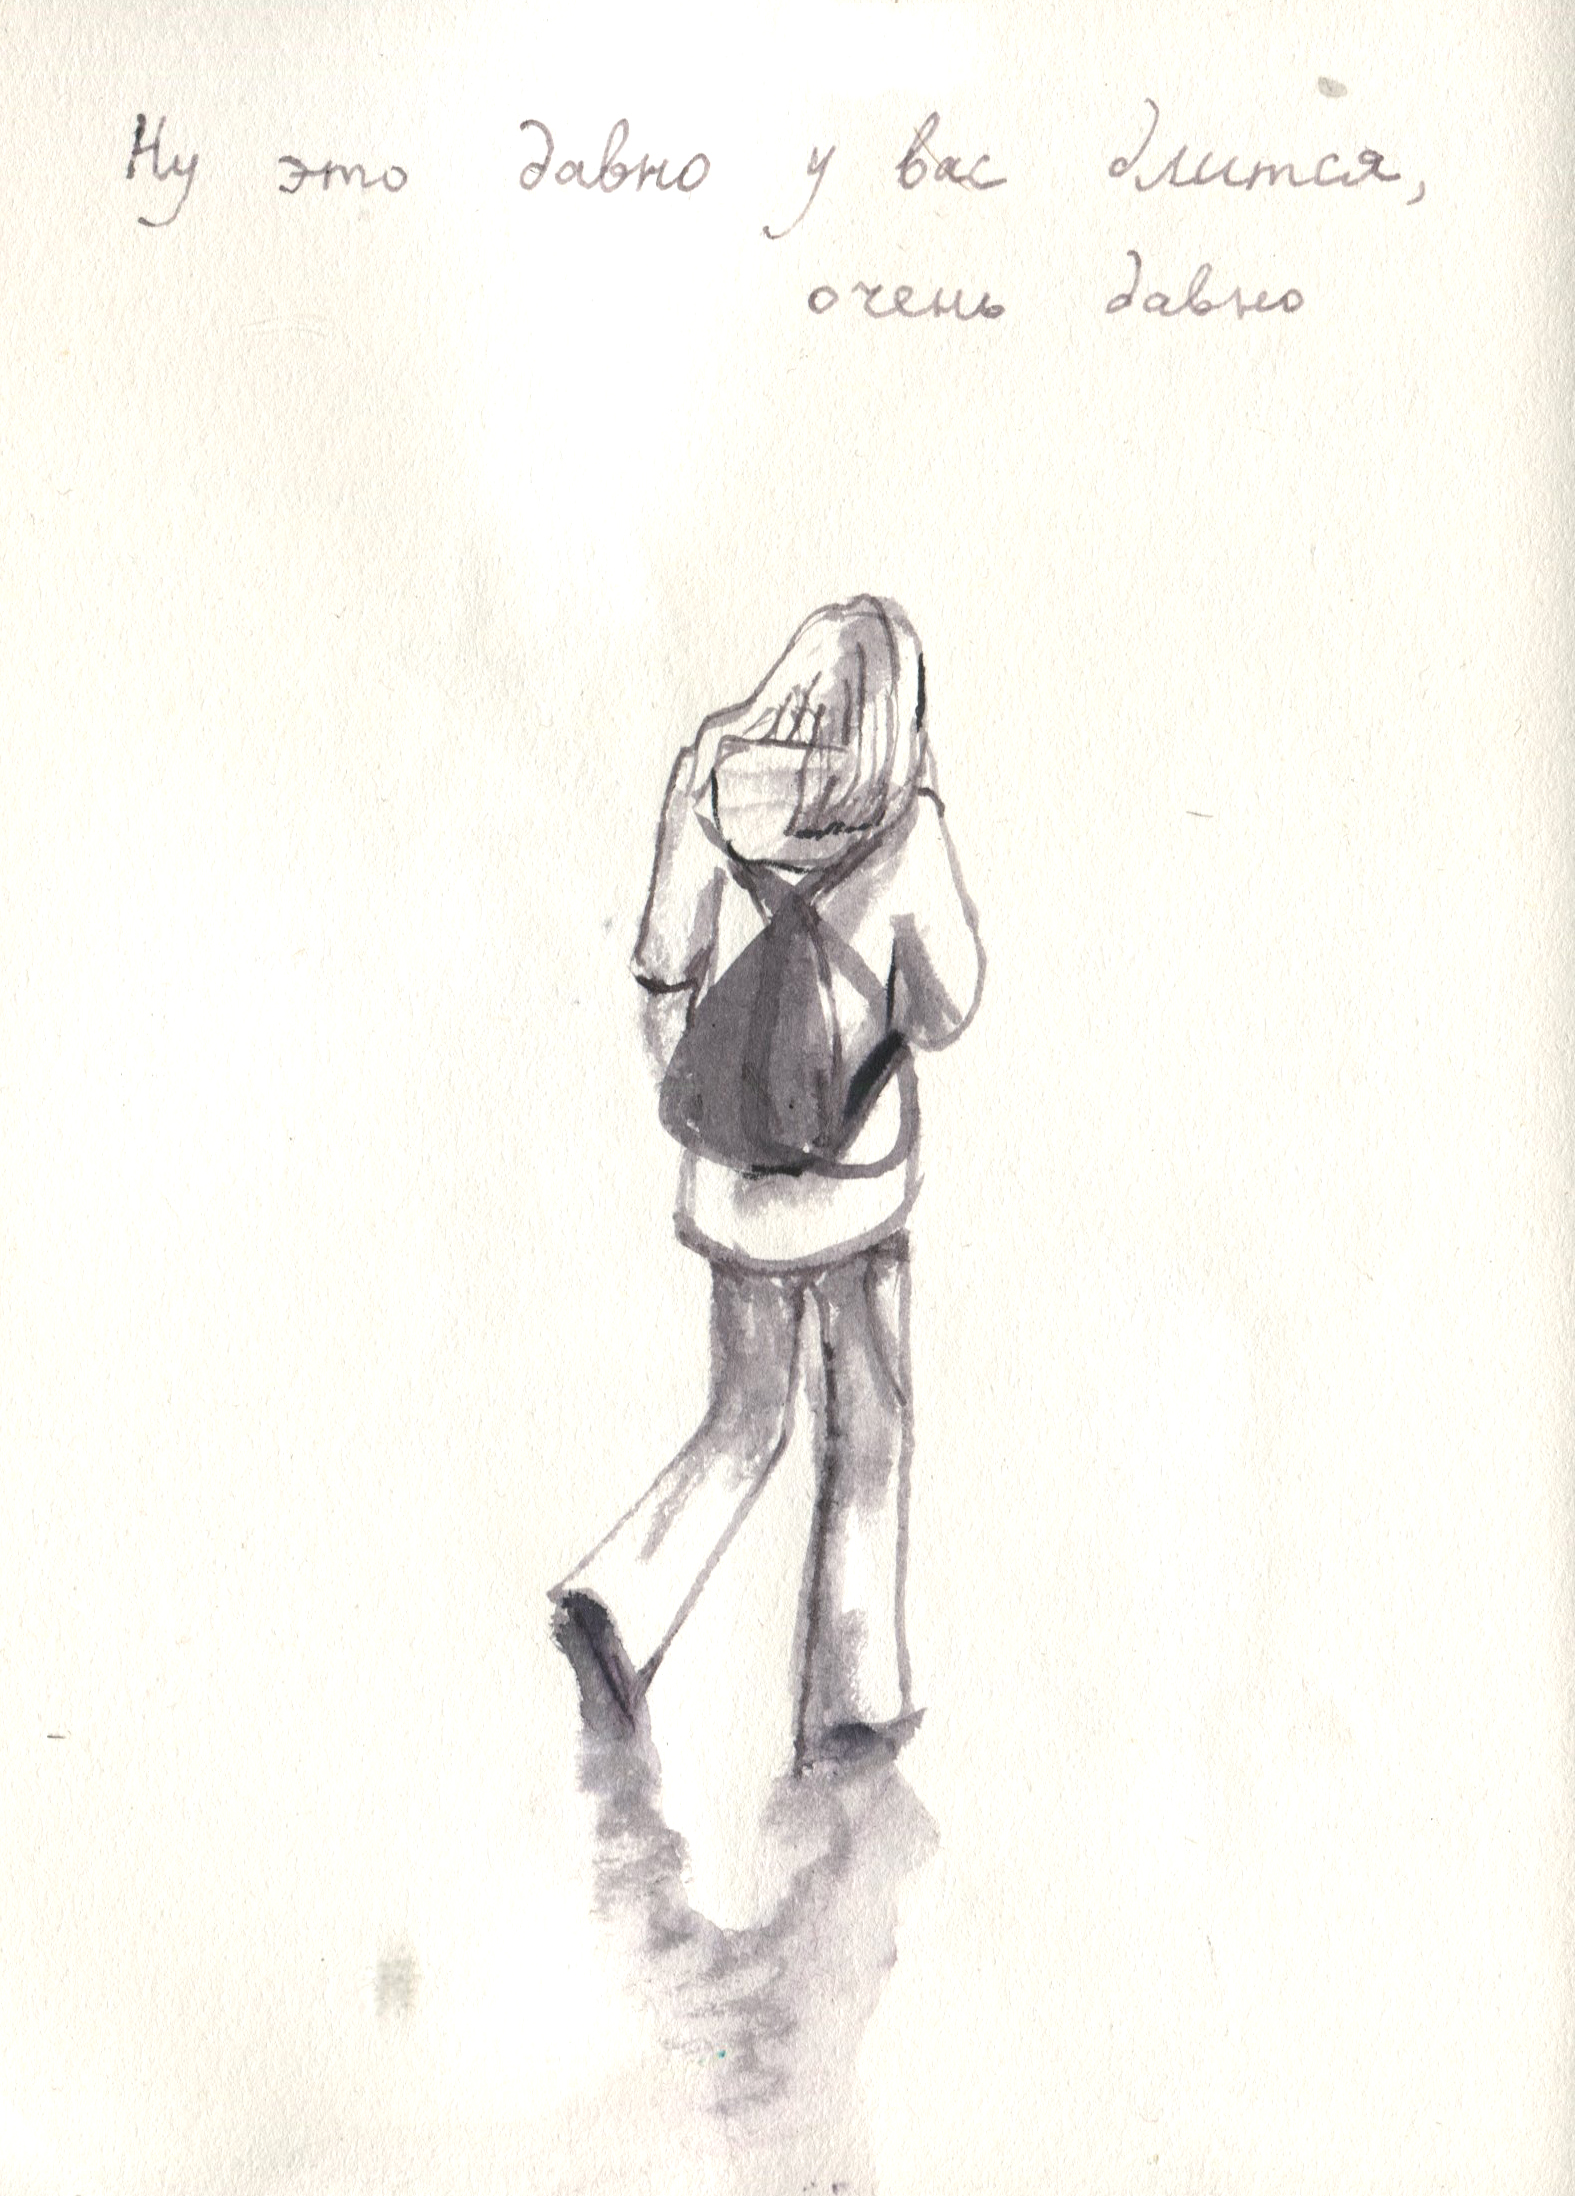 Ну это давно у вас длится,
очень давно